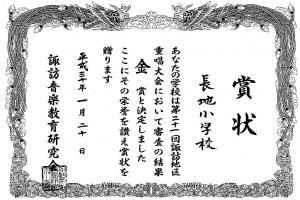 賞状
長地小学校
あなたの学校は第三十一回諏訪地区
重唱大会において審査の結果
金 賞と決定しました
ここにその栄誉を讃え賞状を
贈ります
平成三十年一月二十日
諏訪音楽教育研究会